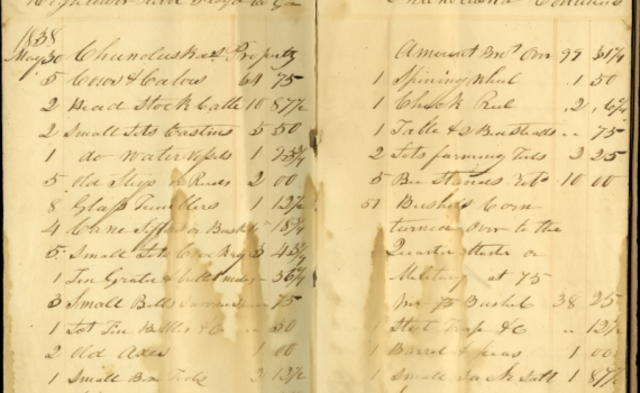 1838
May 30 Chunoluskas Property
5 Cows & Calves 61 75
2 Head Stock Cattle 10 87½
2 Small Lots Castins 5 50
1 do Water Vessels 1 25
5 Old Slays or Reeds 2 00
8 Glass Tumblers 1 12½
4 Cane Sifters or Baskets
5 Small Lots Crockery 3
1 Tin Grater &
3 Small Bells 75
1 Lot Tin &c " 50
2 Old Axes 1 00
1 Small Box Tools 2 12½
Amount Bro Over 99
1 Spining Wheel 1 50
1 Check Reel 2
1 Table & 2 Bedsteads " 75
2 Lots farming Tools 3 25
5 Bee Stands 10 00
51 Bushels Corn
turned Over to the
Quarter Master or
Military at 75
Bushel 38 25
1 Steel Trap &c " 12½
1 Barrel & peas 1 00
1 Small Sack Salt 1 87½